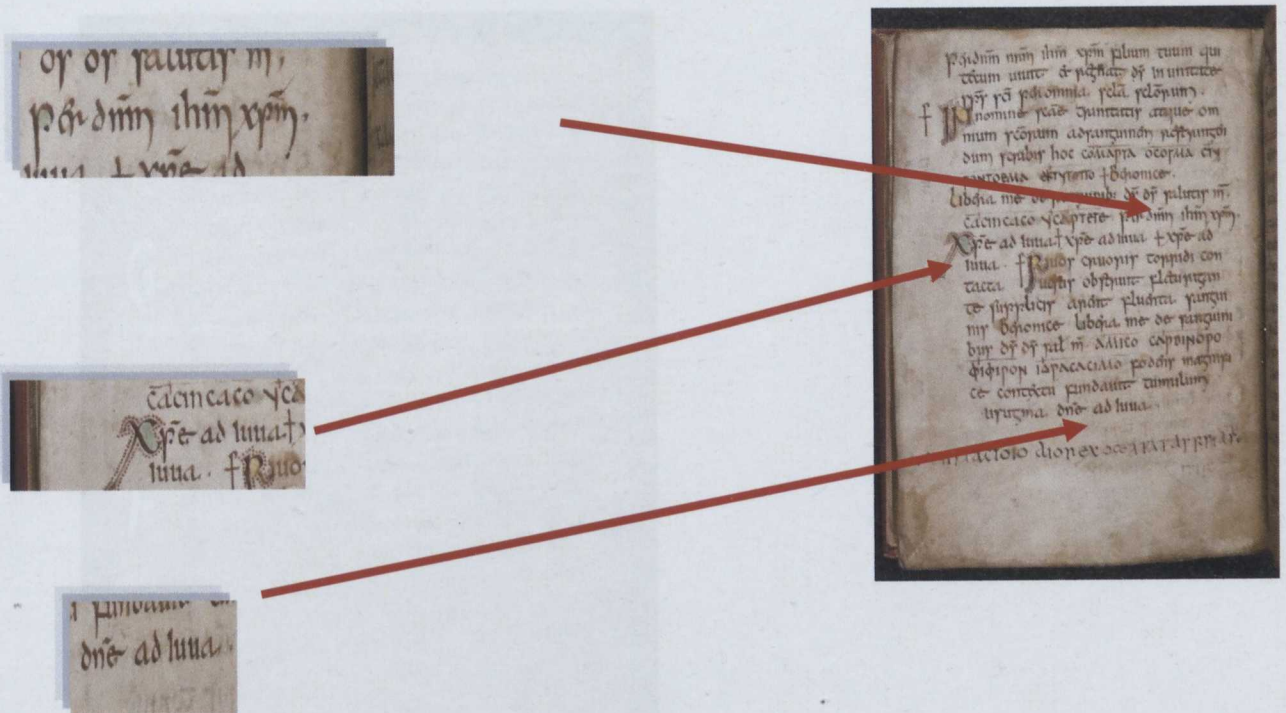 ds ds salutis m̄.
per dn̄m ih̄m xp̄m.
iuua + xp̄e ad
cacincaco
Xp̄e ad iuua +
iuua. + Riuos
fundauit
dn̄e ad iuua
Per dn̄m nr̄m ih̄m xp̄m filium tuum qui
tecum uiuit & regnat ds̄ in unitate
sp̄s sc̄i per omnia scl̄a scl̄orum.
+ In nomine sc̄ae trinitatis atque om
nium sc̄orum ad sanguinem restringen
dum scribis hoc COMAPTA OCOGMA
+ Beronice.
Libera me de ds̄ ds̄ salutis m̄.
CACINCACO YCAPTETE per dn̄m ih̄m xp̄m.
Xp̄e ad iuua + xp̄e ad iuua + xp̄e ad
iuua. + Riuos cruoris torridi con
tacta uestis obstruit fletu rigan
te supplicis arent fluenta sangui
nis Beronice libera me de sanguini
bus ds̄ ds̄ sal m̄ AMICO CAPDINOPO
FIFIPON IDPACACIMO fodens magnifi
ce contextu fundauit tumulum
usugma dn̄e ad iuua.